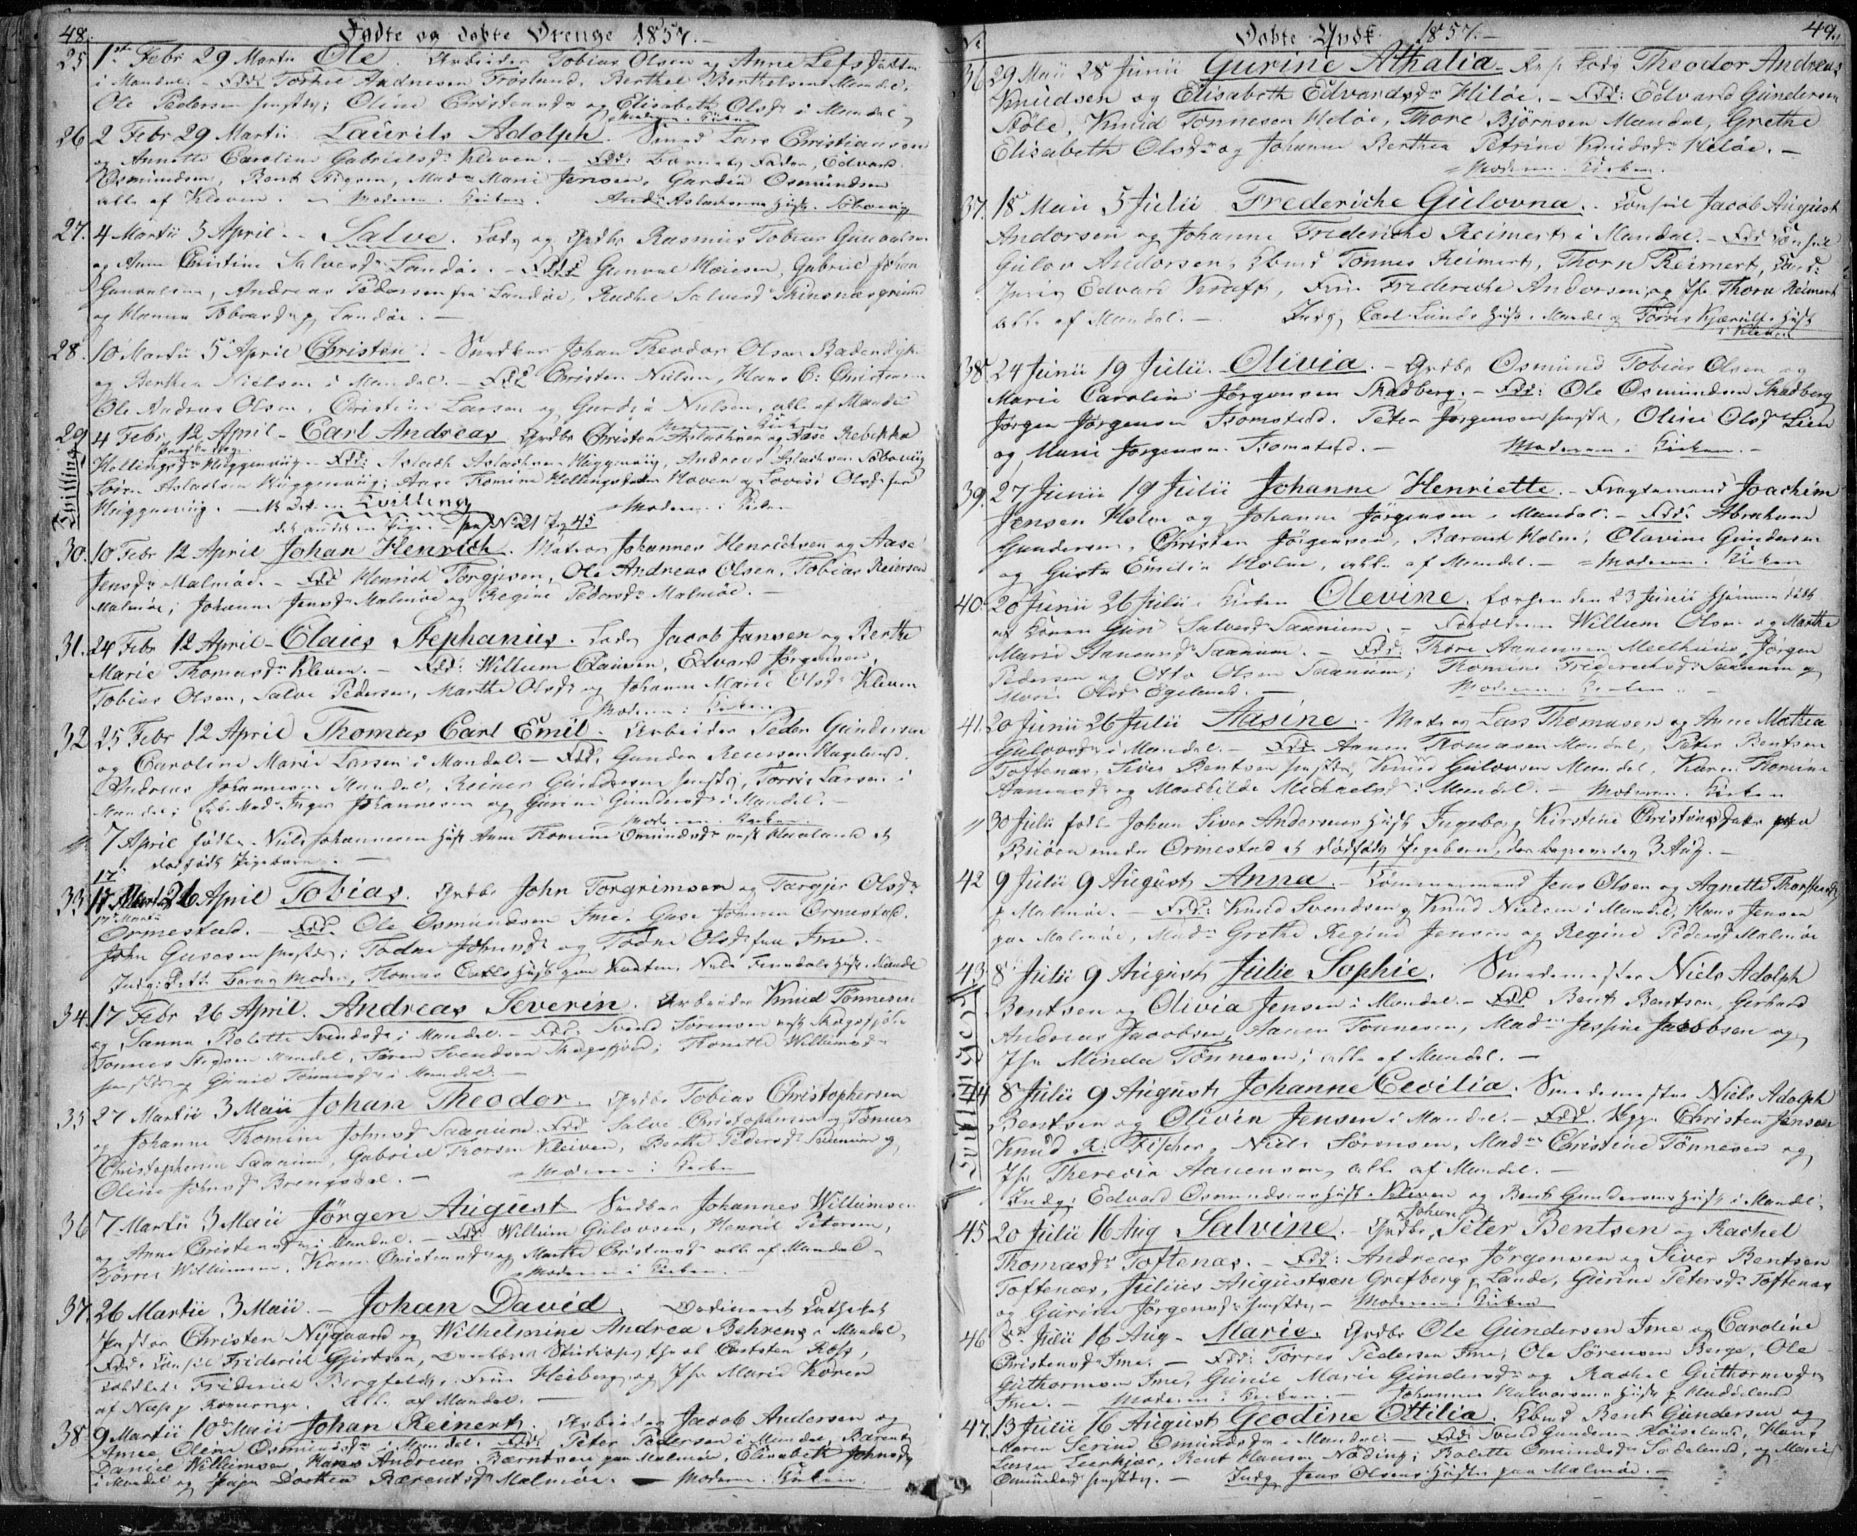 48.
Födte og döbte Drenge 1857.
25 1ste Febr 29 Martii Ole. Arbeider Tobias Olsen og Anne Lefsdatter
i Mandal. Fdd: Torkel Aadnesen Frøslund, Berthel Berthelsen Mandal,
Ole Pedersen ; Oline Christensdr og Elisabeth Olsdr i Mandal,
Moderen i Kirken
26 2 Febr 29 Martii Laurits Adolph. Smed Lars Christiansen
og Annette Caroline Gabrielsdr Kleven. Fdd: Barnets Fader, Edvard
Osmundsen, Bent Stigsen, Madm Marie Jensen, Gurdia Osmundsen
alle af Kleven. Moderen i Kirken. Ands Aslachsens Hust.
27. 4 Martii 5 April. Salve. Lods og Grdbr Rasmus Tobias Gunvalsen
og Anne Christine Salvesdr Landøe. Fdd: Gunval Hoiesen, Gabriel Johan
Gunvalsen, Andreas Pedersen fra Landøe, Rachel Salvesdr Skinsnæsgrund
og Hanna Tobiasdr p Landøe.
28. 10 Martii 5 April Christen. Snedker Johan Theodor Olsen
og Berthea Nielsen i Mandal. Fdd Christen Nielsen, Hans C: Christensen
Ole Andreas Olsen, Christine Larsen og Gurdia Nielsen, alle af Mandal
Moderen i Kirken
29 4 Febr 12 April Carl Andreas, Grdbr Christen Aslachsen og Aase Rebekka
Tvilling
Hellingsdr Huggenviig. Fdd: Aslach Aslachsen Huggenviig, Andreas Aslachsen
Sören Aslachsen Huggenviig; Aase Tomine Hellingsdatter Hoven og Lovise Olsdr fra
Huggenviig. NB det en Tvilling Moderen i Kirken
det andet en Pige. No 21 Pag 45
30. 10 Febr 12 April Johan Henrich. Matros Johannes Henrichsen og Aase
Jensdr Malmøe. Fdd Henrich Torgjusen, Ole Andreas Olsen, Tobias Reiersen
Malmøe; Johanne Jensdr Malmøe og Regine Pedersdr Malmøe.
31. 24 Febr 12 April Claus Stephanius. Lods Jacob Jansen og Berthe
Marie Thomasdr Kleven. Fdd: Willum Clausen, Edvard Jørgensen,
Tobias Olsen, Salve Pedersen, Marthe Olsdr og Johanne Marie Olsdr Kleven
Moderen i Kirken
32 25 Febr 12 April Thomas Carl Emil. Arbeider Peder Gundersen
og Caroline Marie Larsen i Mandal. Fdd, Gunder Reiersen Hagelund.
Andreas Johannesen Mandal, Reiner Gundersen, Torris Larsen i
Mandal; Madm Inger Johannesen og Gurine Gundersdr i Mandal.
Moderen i Kirken.
7 April fødte Niels Johannesens Hust Anne Tomine Osmundsdr et
dødfødt Pigebarn.
33 17 Martii 26 April Tobias. Grdbr John Torgrimsen og Targjer Olsdr
Ormestad. Fdd. Ole Osmundsen Ime. Guse Johnsen Ormestad.
John Gusesen; Todne Johnsdr og Todne Olsdr fra Ime.
34. 17 Febr 26 April. Andreas Severin. Arbeider Knud Tönnesen
og Sanna Bolette Svendsdr i Mandal. Fdd. Svend Sörensen
Tönnes Stigsen Mandal, Sören Svendsen Skogsfjord; Tönette Willumsdr
og Gunie Tönnesdr i Mandal.
35 27 Martii 3 Maii Johan Theodor. Grdbr Tobias Christophersen
og Johanne Thomine Johnsdr Saanum. Fdd Salve Christophersen og Tönnes
Christophersen Saanum, Gabriel Thorsen Kleiven, Berthe Pedersdr Saanum og
Oline Johnsdr Brengsdal. Moderen i Kirken
36 7 Martii 3 Maii Jörgen August Snedker Johannes Willumsen
og Anne Christensdr i Mandal. Fdd: Willum Gulovsen, Henrik Petersen,
Börre Willumsen, Karen Christensdr og Marthe Christensdr alle af Mandal
Moderen i Kirken.
37. 26 Martii 3 Maii. Johan David. Ordineret Catechet
Christen Nygaard og Wilhelmine Andrea Behrens i Mandal.
Fdd. Consul Friderich Gjertsen,
Friderich Bergfeldt, Fru Heiberg og Jfr Marie Koren
alle af Mandal.
38. 9 Martii 10 Maii Johan Reinert. Arbeider Jacob Andersen og
Anne Oline Osmundsdr i Mandal. Fdd. Peter Pedersen i Mandal, Berent
Daniel Willumsen, Hans Andreas Bærntsen paa Malmøe, Elisabeth Johnsdr
i Mandal og Dorthea Bærentsdr Malmøe. Moderen i Kirken
49.
No
Döbte Qvdk. 1857.
36 29 Maii 28 Junii Gurine Athalia. Lods Theodor Andreas
Knudsen og Elisabeth Edvardsdr Hiløe. Fdd: Edvard Gundersen
Støle, Knud Tönnesen Hiløe, Thore Björnsen Mandal, Grethe
Elisabeth Olsdr og Johanne Berthea Petrine Knudsdr Hiløe.
Moderen i Kirken.
37. 18 Maii 5 Julii Frederiche Gulovna. Consul Jacob August
Andorsen og Johanne Frederiche Reimert i Mandal. Fdd Consul
Gulov Andorsen, Kbmd Tönnes Reimert, Thorn Reimert, Cand:
Juris Edvard Kraft, Fru Frederiche Andorsen og Jfr Thora Reimert
alle af Mandal. Indg Carl Lunds Hust. Mandal og Torris Kjærulfs Hust
i Kleven
38 24 Junii 19 Julii. Olivia. Grdbr Osmund Tobias Olsen og
Marie Caroline Jörgensen Skadberg. Fdd: Ole Osmundsen Skadberg
Jörgen Jörgensen Tromstad. Peter Jørgensen, Oline Olsdr Lien
og Marie Jörgensen Tromstad. Moderen i Kirken.
39. 27 Junii 19 Julii Johanne Henriette. Fragtemand Joachim
Jensen Holm og Johanne Jörgensen i Mandal. Fdd: Abraham
Gundersen, Christen Jörgensen, Barent Holm; Olavine Gundersen
og Gusta Emilie Holm, alle af Mandal. Moderen i Kirken
40. 20 Junii 26 Julii i Kirken Olevine, forhen den 23 Junii hjemmedöbt
af Konen Guri Salvesdr Saanum. Forældrene Willum Olsen og Marthe
Marie Aanensdr Saanum. Fdd: Thore Aanensen Meelhuus, Jörgen
Pedersen og Otto Olsen Saanum; Thomine Frederichsdr Saanum og
Maren Olsdr Egelund. Moderen i Kirken
41. 20 Junii 26 Julii Aasine. Matros Lars Thomasen og Anne Mathea
Gulovsdr i Mandal. Fdd. Aanen Thomasen Mandal, Peter Bentsen
Toftenæs, Siver Bentsen, Knud Gulovsen Mandal, Karen Thomine
Aanensdr og Maabilde Michaelsdr i Mandal. Moderen i Kirken
30 Julii födte Johan Siver Andersens Hust Ingeborg Kirstine Christensdatter paa
Buöen under Ormestad et dødfødt Pigebarn, der begravedes 3 Aug.
42 9 Julii 9 August Anna. Tömmermand Jens Olsen og Agnette Thorstensdr
p Malmøe. Fdd: Knud Svendsen og Knud Nielsen i Mandal, Hans Jensen
paa Malmøe, Madm Grethe Regine Jensen og Regine Pedersdr Malmøe
43 8 Julii 9 August Julie Sophie. Smedemester Niels Adolph
Tvillinger
Bentsen og Olivia Jensen i Mandal. Fdd Bent Bentsen, Gerhard
Andreas Jacobsen, Aanen Tönnesen, Madm Jessine Jacobsen og
Jfr Minda Tönnesen, alle af Mandal.
44 8 Julii 9 August Johanne Cecilia. Smedemester Niels Adolph
Bentsen og Olivia Jensen i Mandal. Fdd. Christen Jensen
Knud A: Fischer, Niels Sörensen, Madm Christine Tönnesen og
Jfr Theresia Aanensen, alle af Mandal.
Indg: Edvard Osmundsens Hust. Kleven og Bent Gundersens Hust i Mandal.
45 20 Julii 16 Aug Salvine. Grdbr Johan Peter Bentsen og Rachel
Thomasdr Toftenæs. Fdd: Andreas Jörgensen og Siver Bentsen
Toftenæs, Julius Augustsen Grefberg p Lande, Gurine Petersdr Toftenæs
og Gurine Jörgensdr. Moderen i Kirken
46 8 Julii 16 Aug Marie. Grdbr Ole Gundersen Ime og Caroline
Christensdr Ime. Fdd: Torres Pedersen Ime, Ole Sörensen Berge, Ole
Guthormsen Ime, Gunie Marie Gundersdr og Rachel Guthormsdr
Ime. Moderen i Kirken. Johannes Halvorsens Hust p Haddeland
47. 13 Julii 16 August Geodine Ottilia. Kbmd Bent Gundersen og
Karen Serine Omundsdr i Mandal. Fdd: Svend Gundersen Høiseland, Hans
Larsen Leerkjær, Bent Hansen Nøding; Bolette Omundsdr Sødelund, og Marie
Omundsdr. Indg Jens Olsens Hustr paa Malmøe.